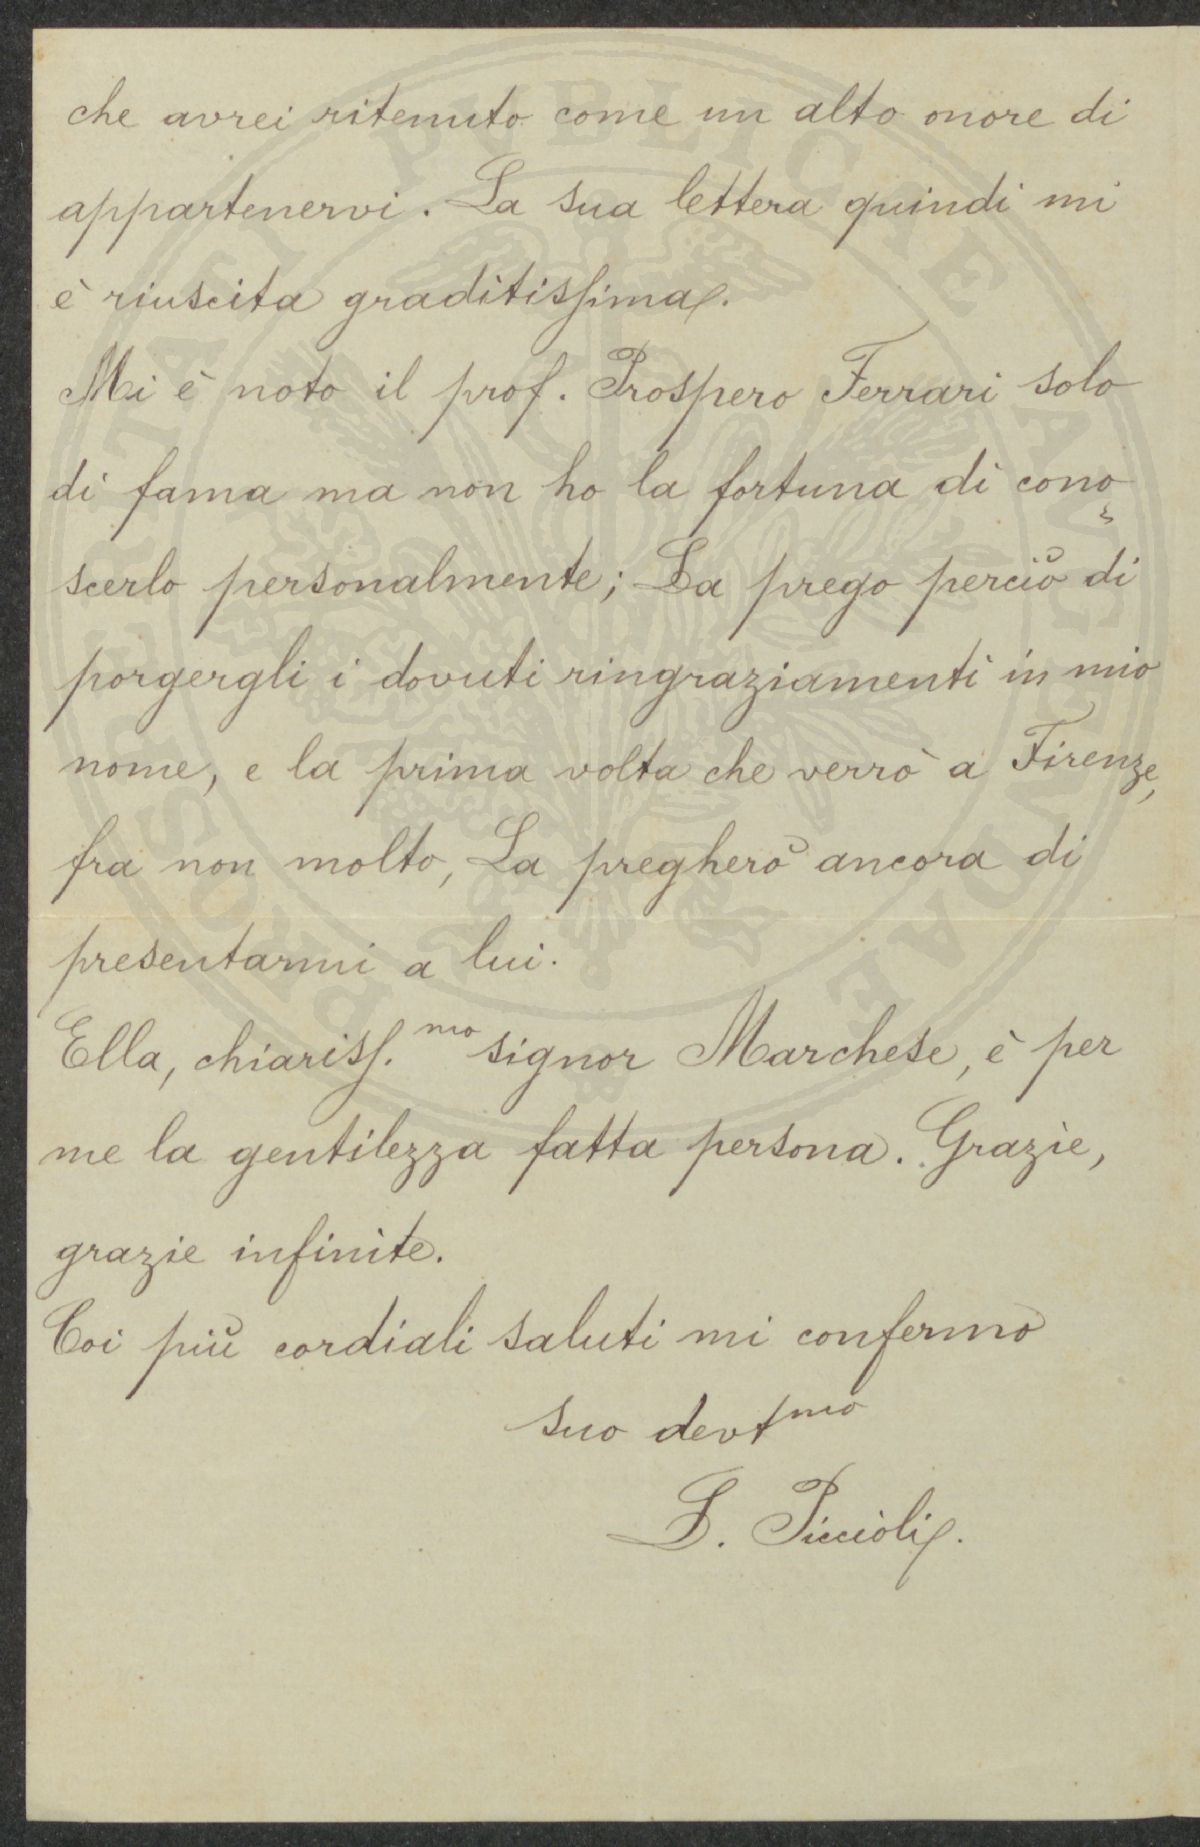 che avrei ritenuto come un alto onore di
appartenervi. La sua lettera quindi mi
è riuscita graditissima.
Mi è noto il prof. Prospero Ferrari solo
di fama ma non ho la fortuna di cono
scerlo personalmente; La prego perciò di
porgergli i dovuti ringraziamenti in mio
nome, e la prima volta che verrò a Firenze,
fra non molto, La pregherò ancora di
presentarmi a lui.
Ella, chiariss.mo signor Marchese, è per
me la gentilezza fatta persona. Grazie,
grazie infinite.
Coi più cordiali saluti mi confermo
suo devtmo
L. Piccioli.